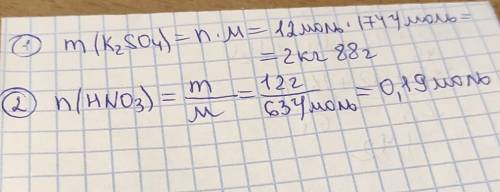 ① m(K₂SO₄) = n · M = 12 моль · 174 г/моль =
= 2 кг 88 г
② n(HNO₃) = m/M = 12 г/63 г/моль = 0,19 моль